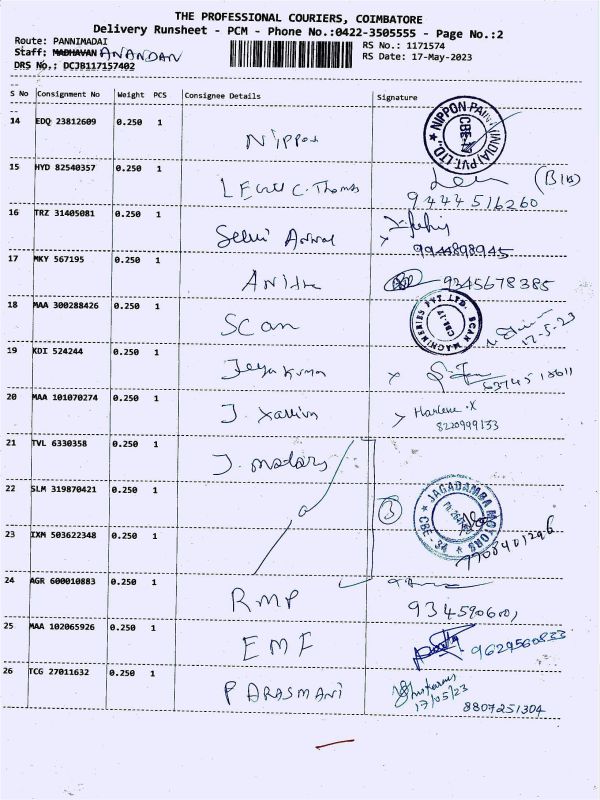 THE PROFESSIONAL COURIERS, COIMBATORE
Delivery Runsheet - PCM - Phone No.:0422-3505555 - Page No.:2
Route: PANNIMADAI
RS No.: 1171574
Staff: MADHAVAN ANANDAN
RS Date: 17-May-2023
DRS No.: DCJB117157402
S No Consignment No Weight PCS Consignee Details Signature
14 EDQ 23812609 0.250 1 Nippon
NIPPON PAINT (INDIA) PVT. LTD., CBE
15 HYD 82540357 0.250 1 C. Thomas
9444516260
16 TRZ 31405081 0.250 1 Selvi
9944898945
17 MKY 567195 0.250 1 Anitha 9345678385
18 MAA 300288426 0.250 1 Scan
SCAN MACHINERIES PVT. LTD. CBE-17
17-5-23
19 KDI 524244 0.250 1 Jeyakumar
20 MAA 101070274 0.250 1 J. Xavier
Harlene .X
8220999133
21 TVL 6330358 0.250 1 J. motors
22 SLM 319870421 0.250 1
3
JAGADAMBA MOTORS CBE - 34
23 IXM 503622348 0.250 1
7708401296
24 AGR 600010883 0.250 1 RMP
9345906001
25 MAA 102065926 0.250 1 EMF
9629560833
26 TCG 27011632 0.250 1 PARASMANI
17/05/23
8807251304